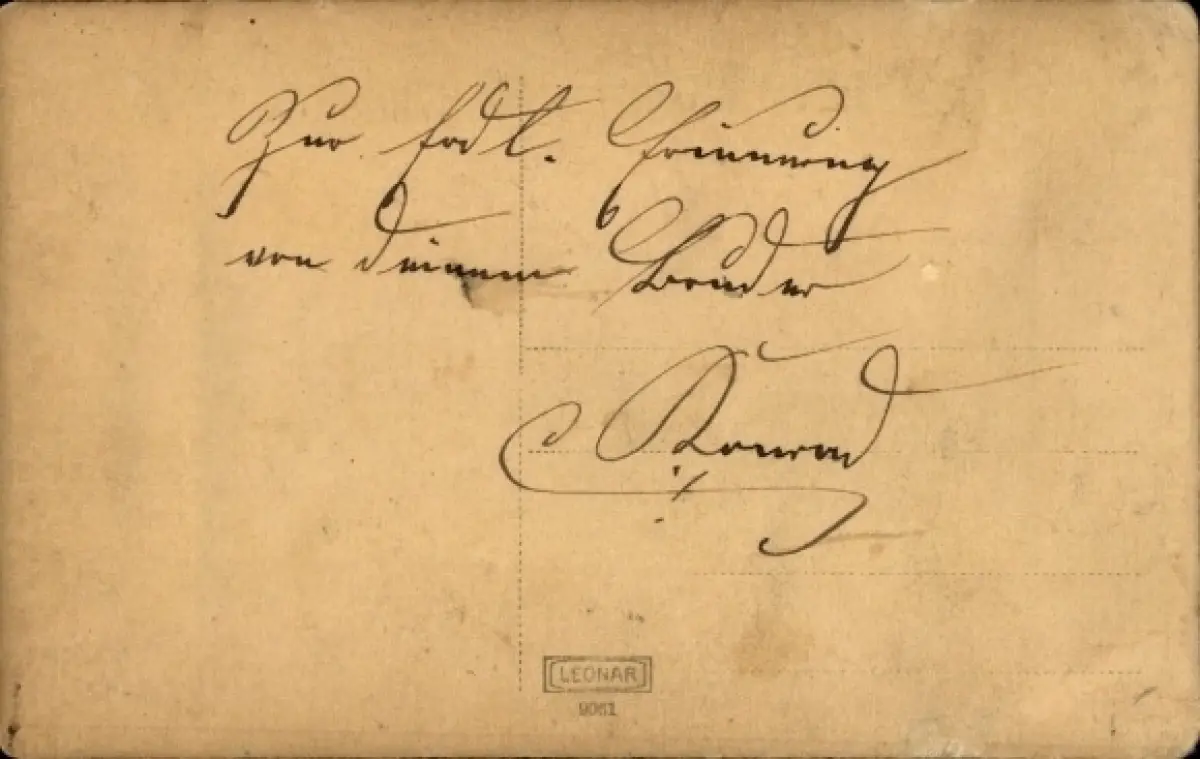 Zur frdl. Erinnerung
von deinem Bruder
Konrad
LEONAR
9061